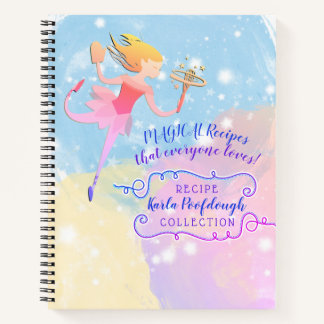 MAGICAL Recipes
that everyone loves!
RECIPE
Karla Poofdough
COLLECTION